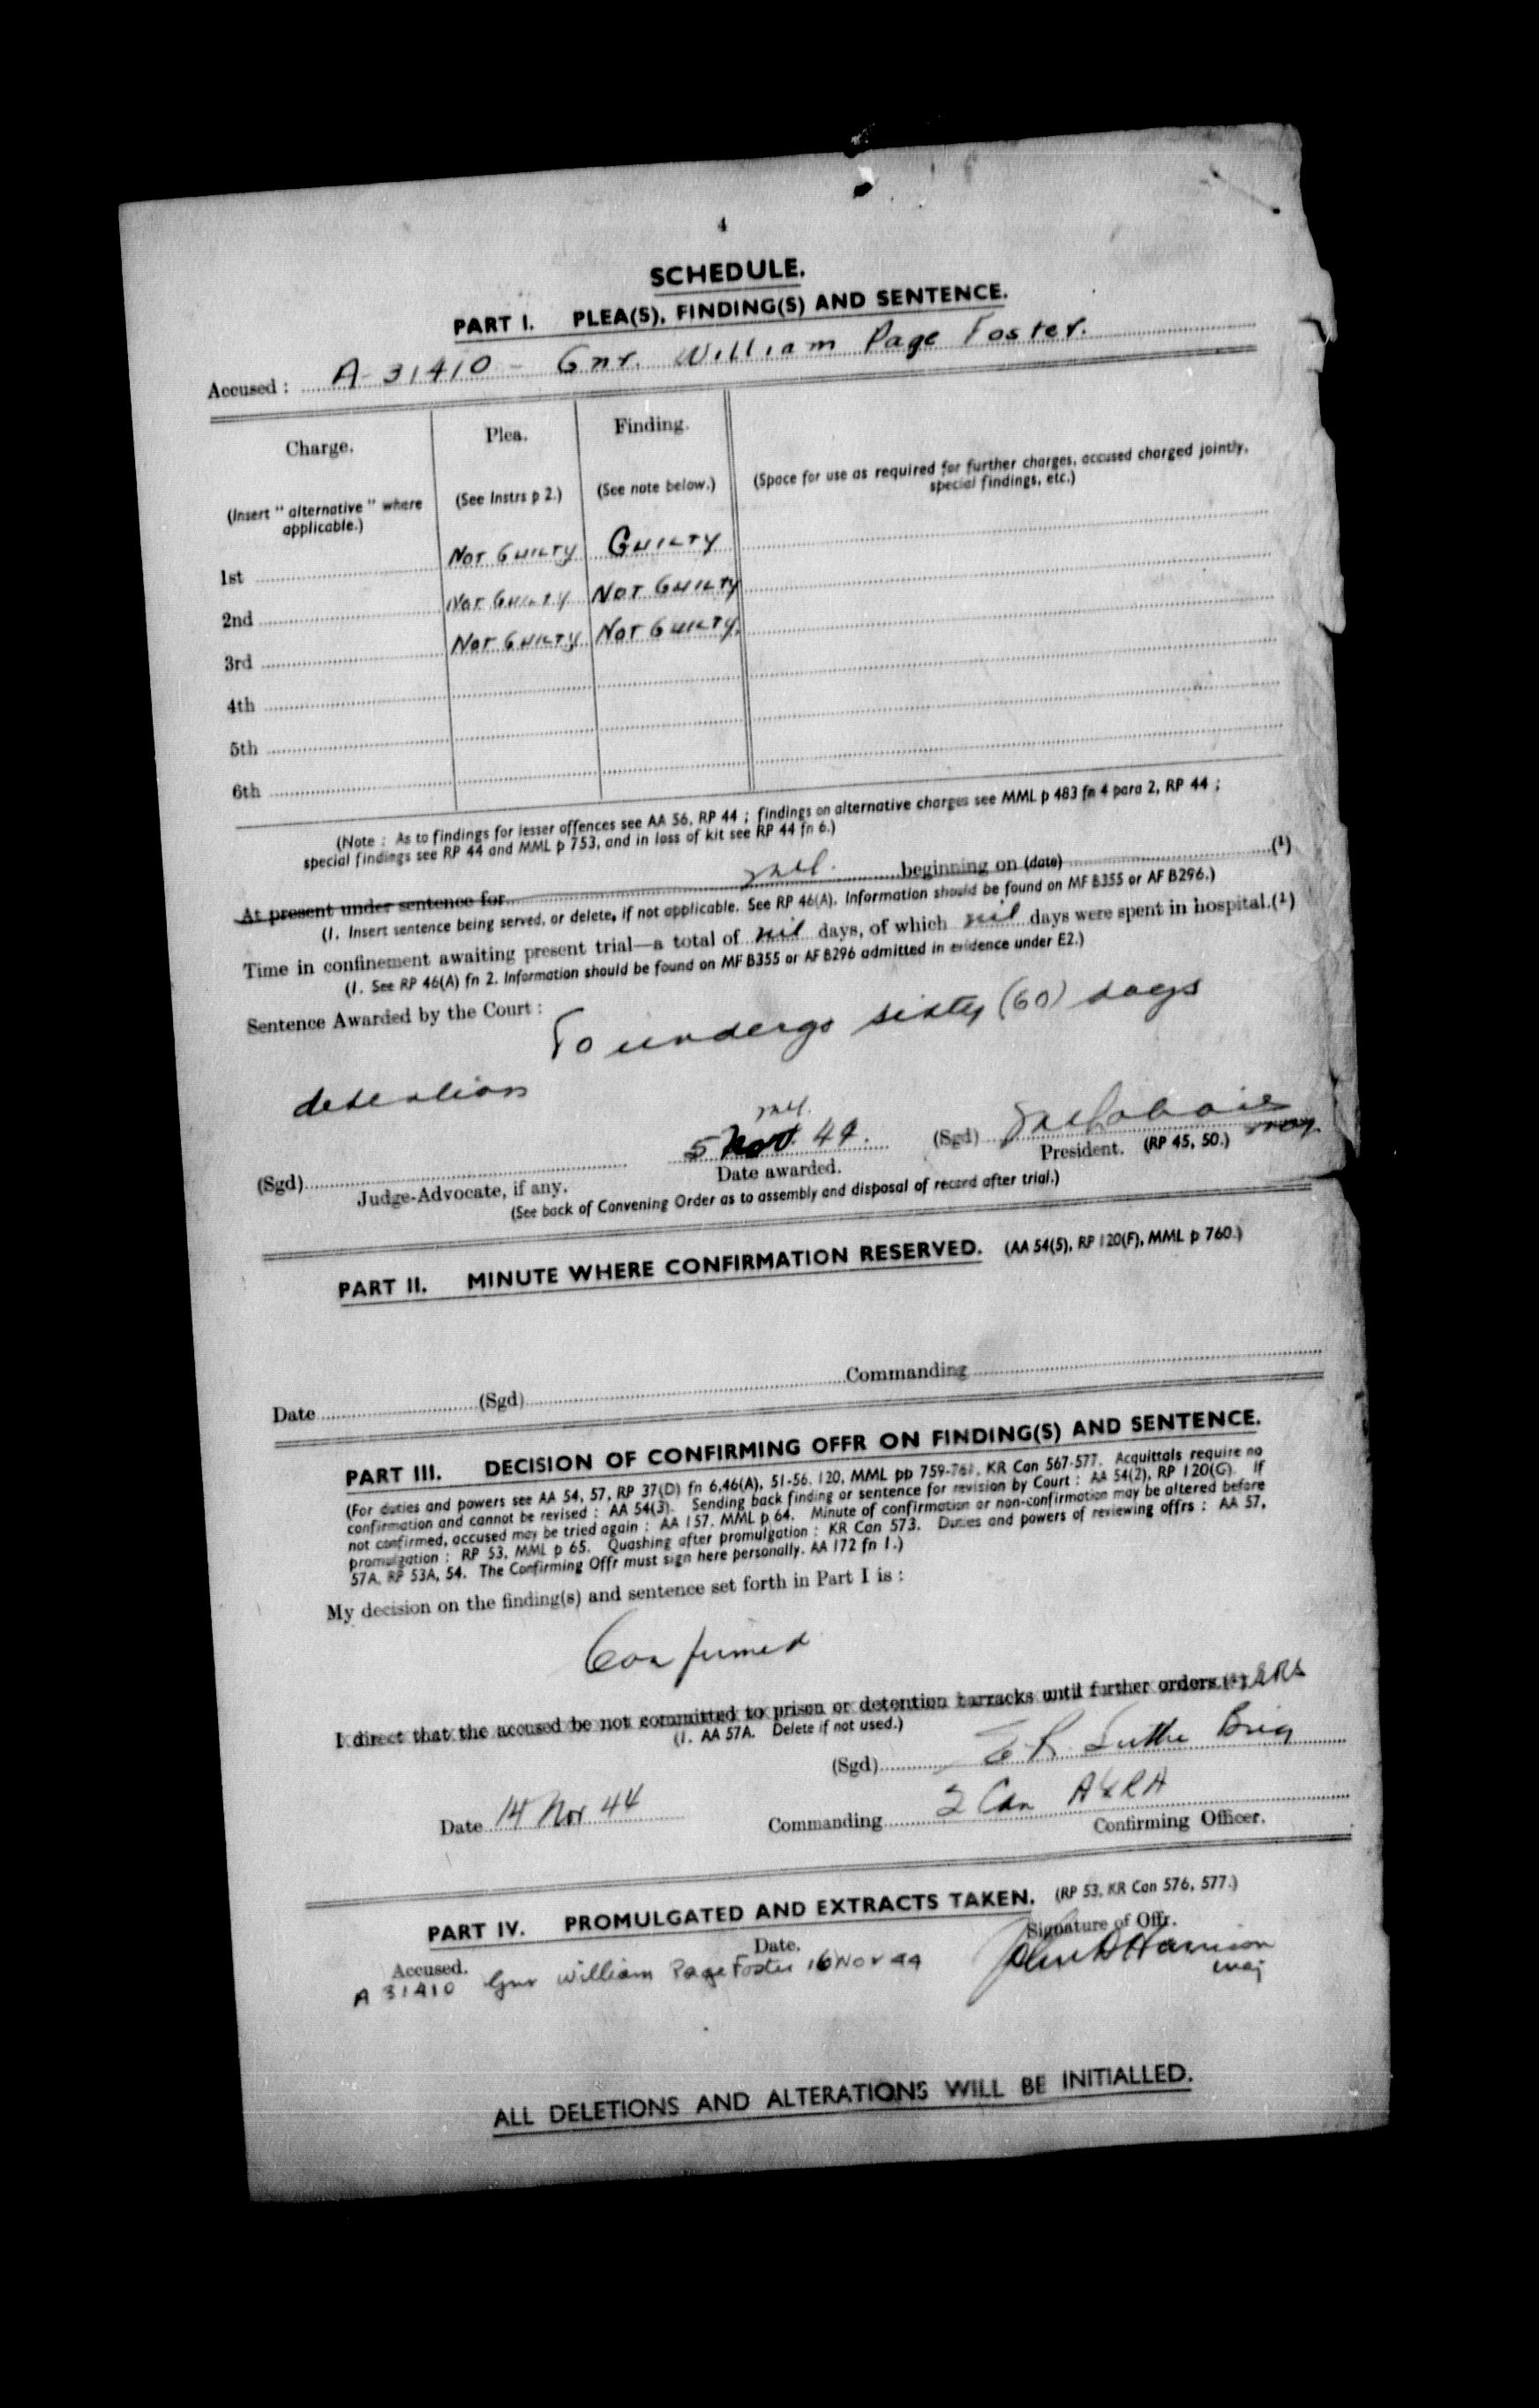 4
SCHEDULE.
PART I. PLEA(S), FINDING(S) AND SENTENCE.
Accused : A-31410 - Gnr. William Page Foster.
Charge. Plea. Finding.
(Insert "alternative" where applicable.) (See Instrs p 2.) (See note below.) (Space for use as required for further charges, accused charged jointly, special findings, etc.)
1st Not Guilty Guilty
2nd Not Guilty Not Guilty
3rd Not Guilty Not Guilty.
4th
5th
6th
(Note : As to findings for lesser offences see AA 56, RP 44 ; findings on alternative charges see MML p 483 fn 4 para 2, RP 44 ;
special findings see RP 44 and MML p 753, and in loss of kit see RP 44 fn 6.)
At present under sentence for beginning on (date) (¹)
(1. Insert sentence being served, or delete, if not applicable. See RP 46(A). Information should be found on MF B355 or AF B296.)
Time in confinement awaiting present trial—a total of nil days, of which nil days were spent in hospital.(¹)
(1. See RP 46(A) fn 2. Information should be found on MF B355 or AF B296 admitted in evidence under E2.)
Sentence Awarded by the Court : To undergo sixty (60) days
detention
5 Nov. 44.
(Sgd) (Sgd)
Judge-Advocate, if any. Date awarded. President. (RP 45, 50.)
(See back of Convening Order as to assembly and disposal of record after trial.)
PART II. MINUTE WHERE CONFIRMATION RESERVED. (AA 54(5), RP 120(F), MML p 760.)
Date (Sgd) Commanding
PART III. DECISION OF CONFIRMING OFFR ON FINDING(S) AND SENTENCE.
(For duties and powers see AA 54, 57, RP 37(D) fn 6,46(A), 51-56, 120, MML pp 759-761, KR Can 567-577. Acquittals require no
confirmation and cannot be revised : AA 54(3). Sending back finding or sentence for revision by Court : AA 54(2), RP 120(G). If
not confirmed, accused may be tried again : AA 157, MML p 64. Minute of confirmation or non-confirmation may be altered before
promulgation : RP 53, MML p 65. Quashing after promulgation : KR Can 573. Duties and powers of reviewing offrs : AA 57,
57A, RP 53A, 54. The Confirming Offr must sign here personally. AA 172 fn 1.)
My decision on the finding(s) and sentence set forth in Part I is :
Confirmed
I direct that the accused be not committed to prison or detention barracks until further orders.(¹)
(1. AA 57A. Delete if not used.)
(Sgd) Brig
Date 14 Nov 44 Commanding 2 Can AGRA
Confirming Officer.
PART IV. PROMULGATED AND EXTRACTS TAKEN. (RP 53, KR Can 576, 577.)
Accused. Date. Signature of Offr.
A 31410 Gnr William Page Foster 16 Nov 44 John Harrison
maj
ALL DELETIONS AND ALTERATIONS WILL BE INITIALLED.